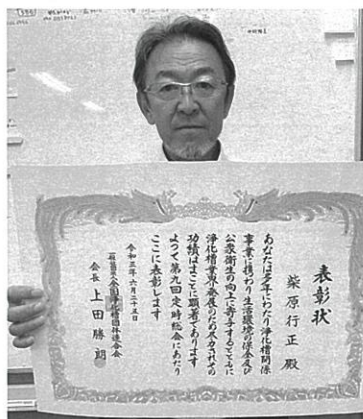 表彰状
柴原行正殿
あなたは多年にわたり浄化槽関係
事業に携わり生活環境の保全及び
公衆衛生の向上に寄与するとともに
浄化槽業界発展のため尽力されその
功績はまことに顕著であります
よって第九回定時総会にあたり
ここに表彰します
令和三年六月二十五日
一般社団法人全国浄化槽団体連合会
会長 上田勝朗